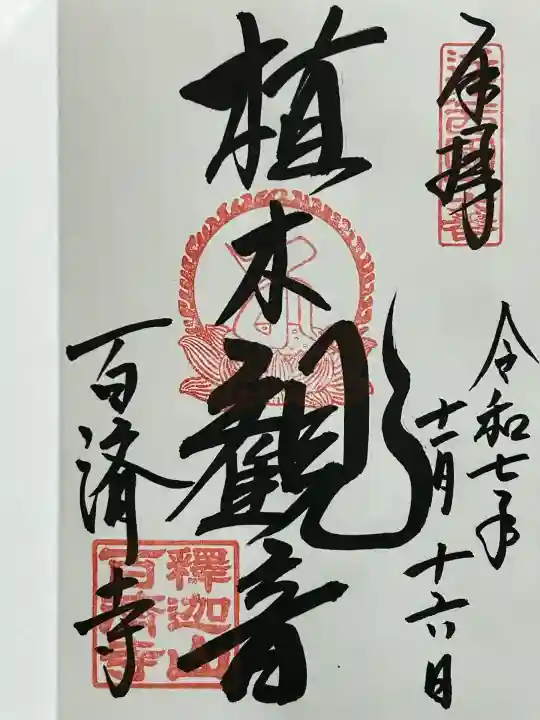 奉拝
令和七年
十一月十六日
植木観音
百済寺
釋迦山
百済寺